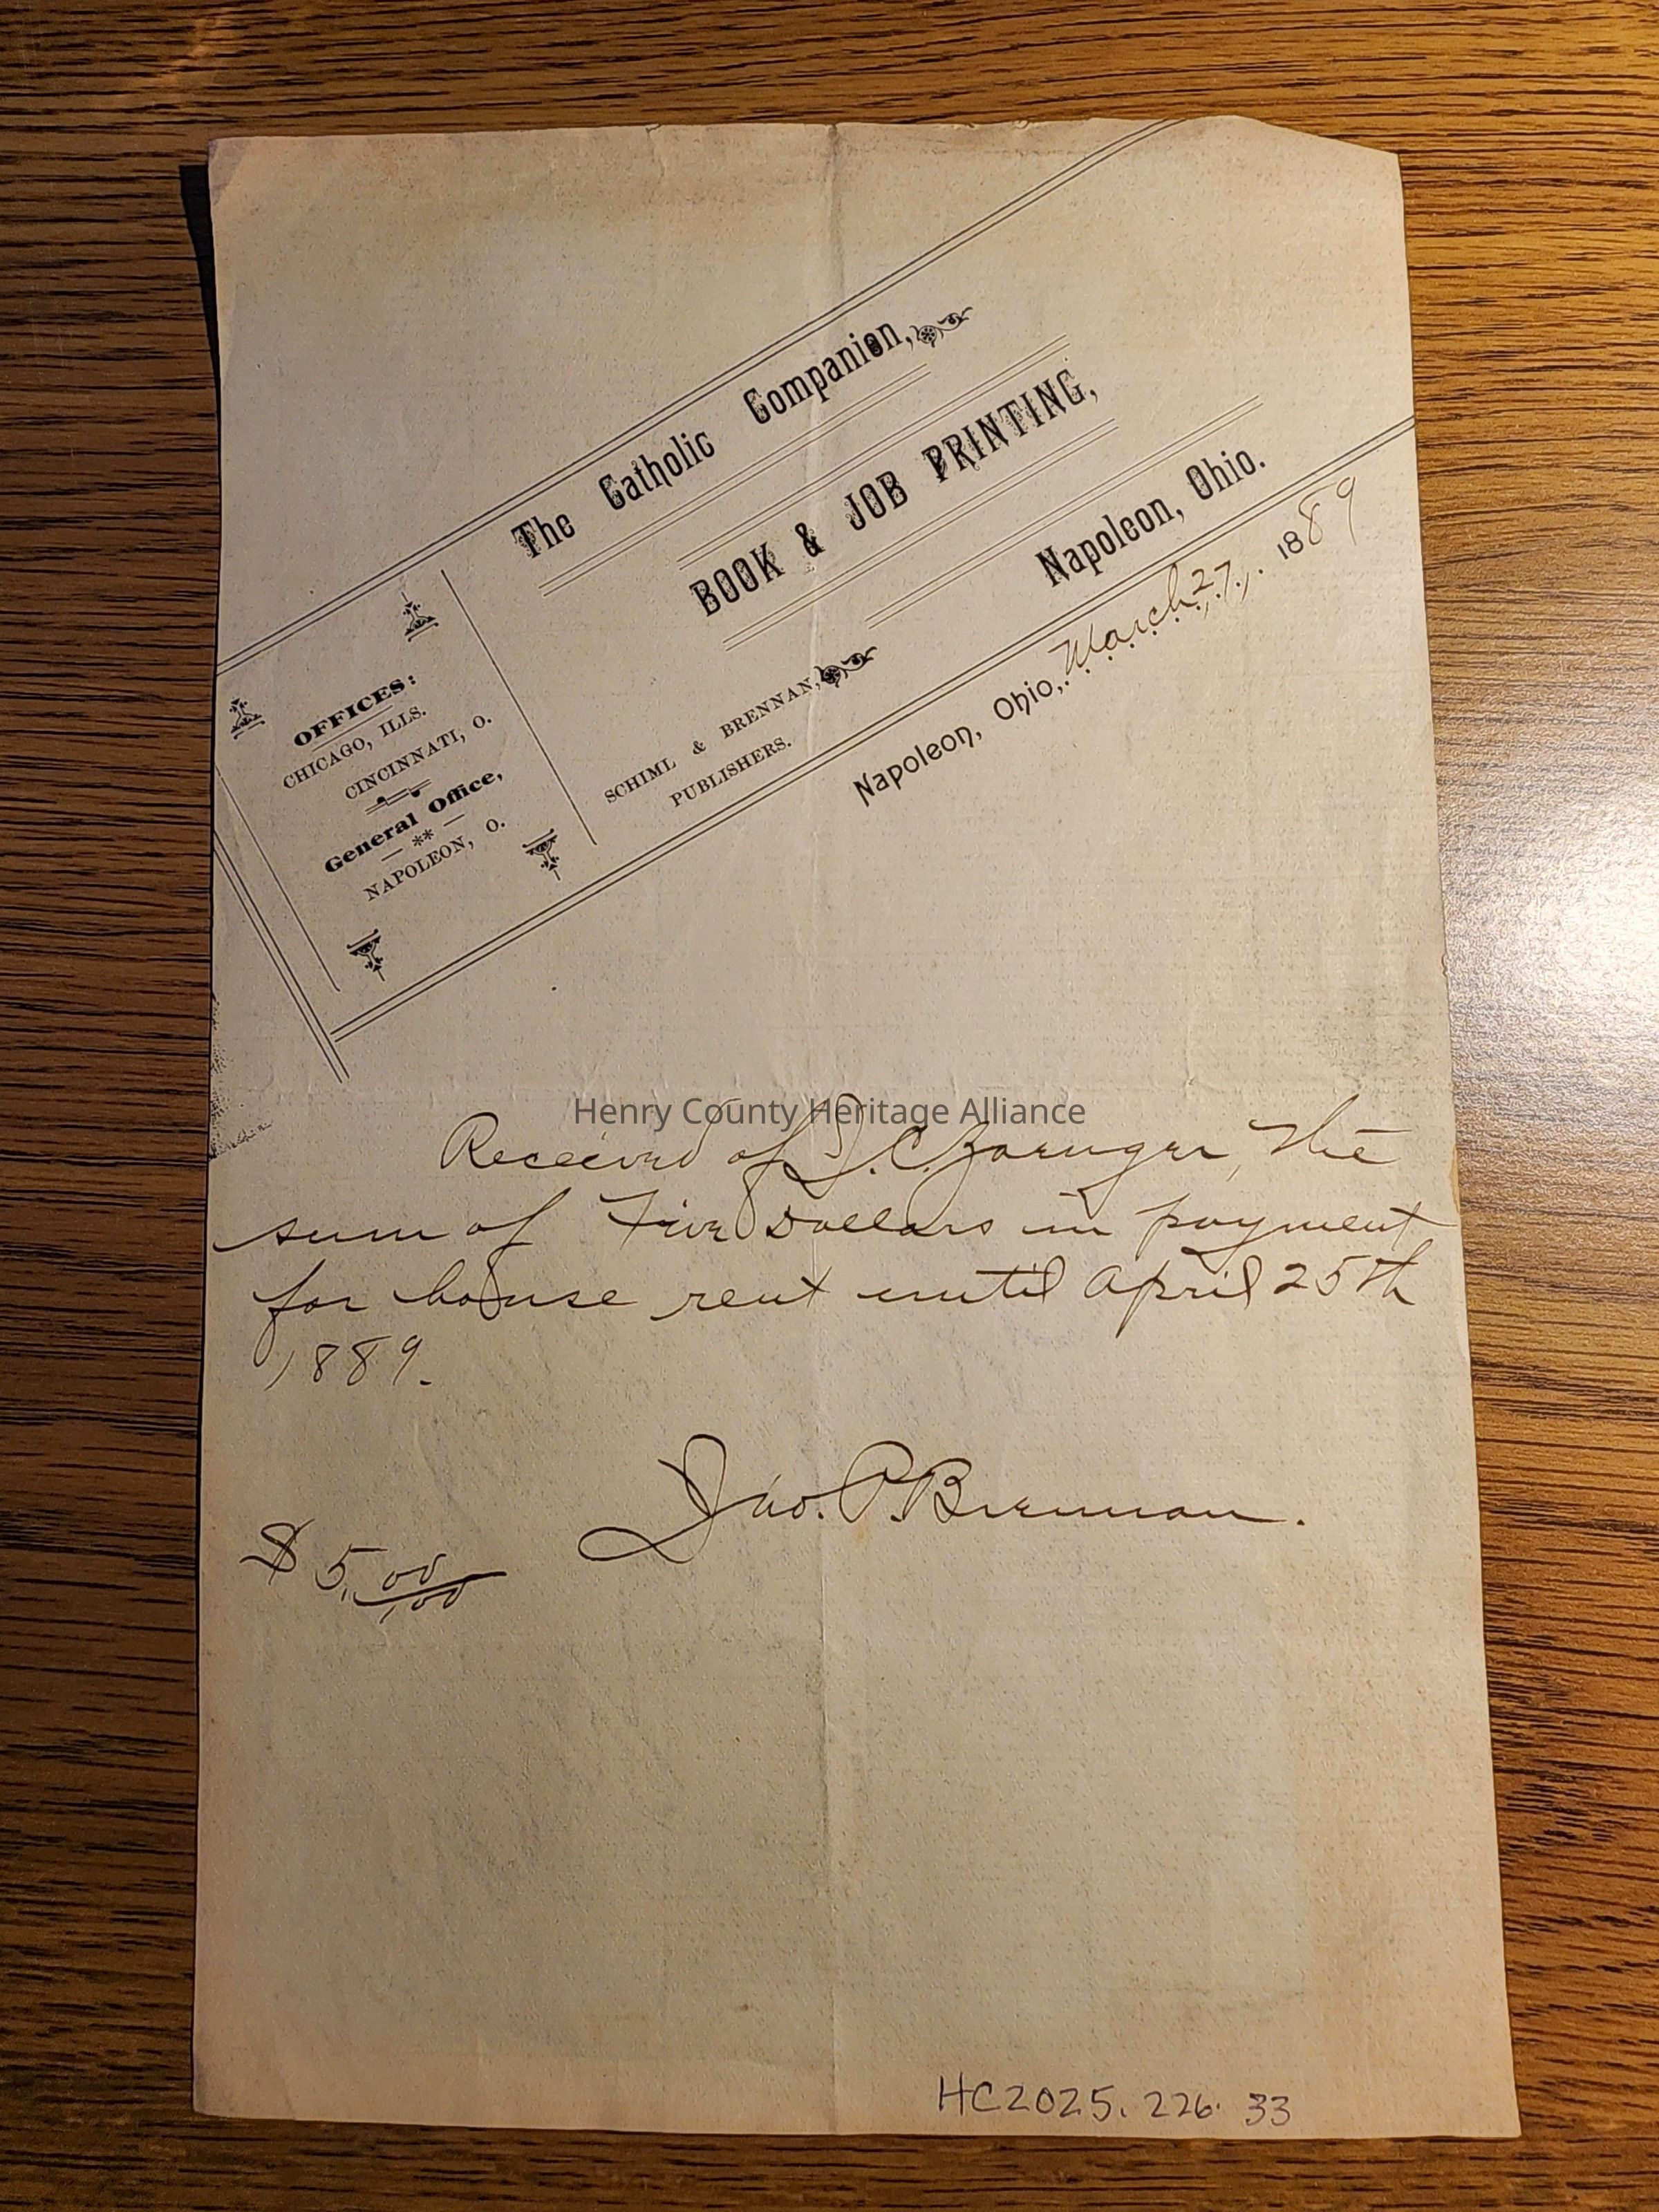 The Catholic Companion,
BOOK & JOB PRINTING,
Napoleon, Ohio.
SCHIML & BRENNAN,
PUBLISHERS.
OFFICES:
CHICAGO, ILLS.
CINCINNATI, O.
General Office,
— ** —
NAPOLEON, O.
Napoleon, Ohio, March 27, 1889
Henry County Heritage Alliance
Received of D.C. the
sum of Five Dollars in payment
for house rent until April 25th
1889.
Jno. P. Brennan.
$5.00/100
HC2025.226.33